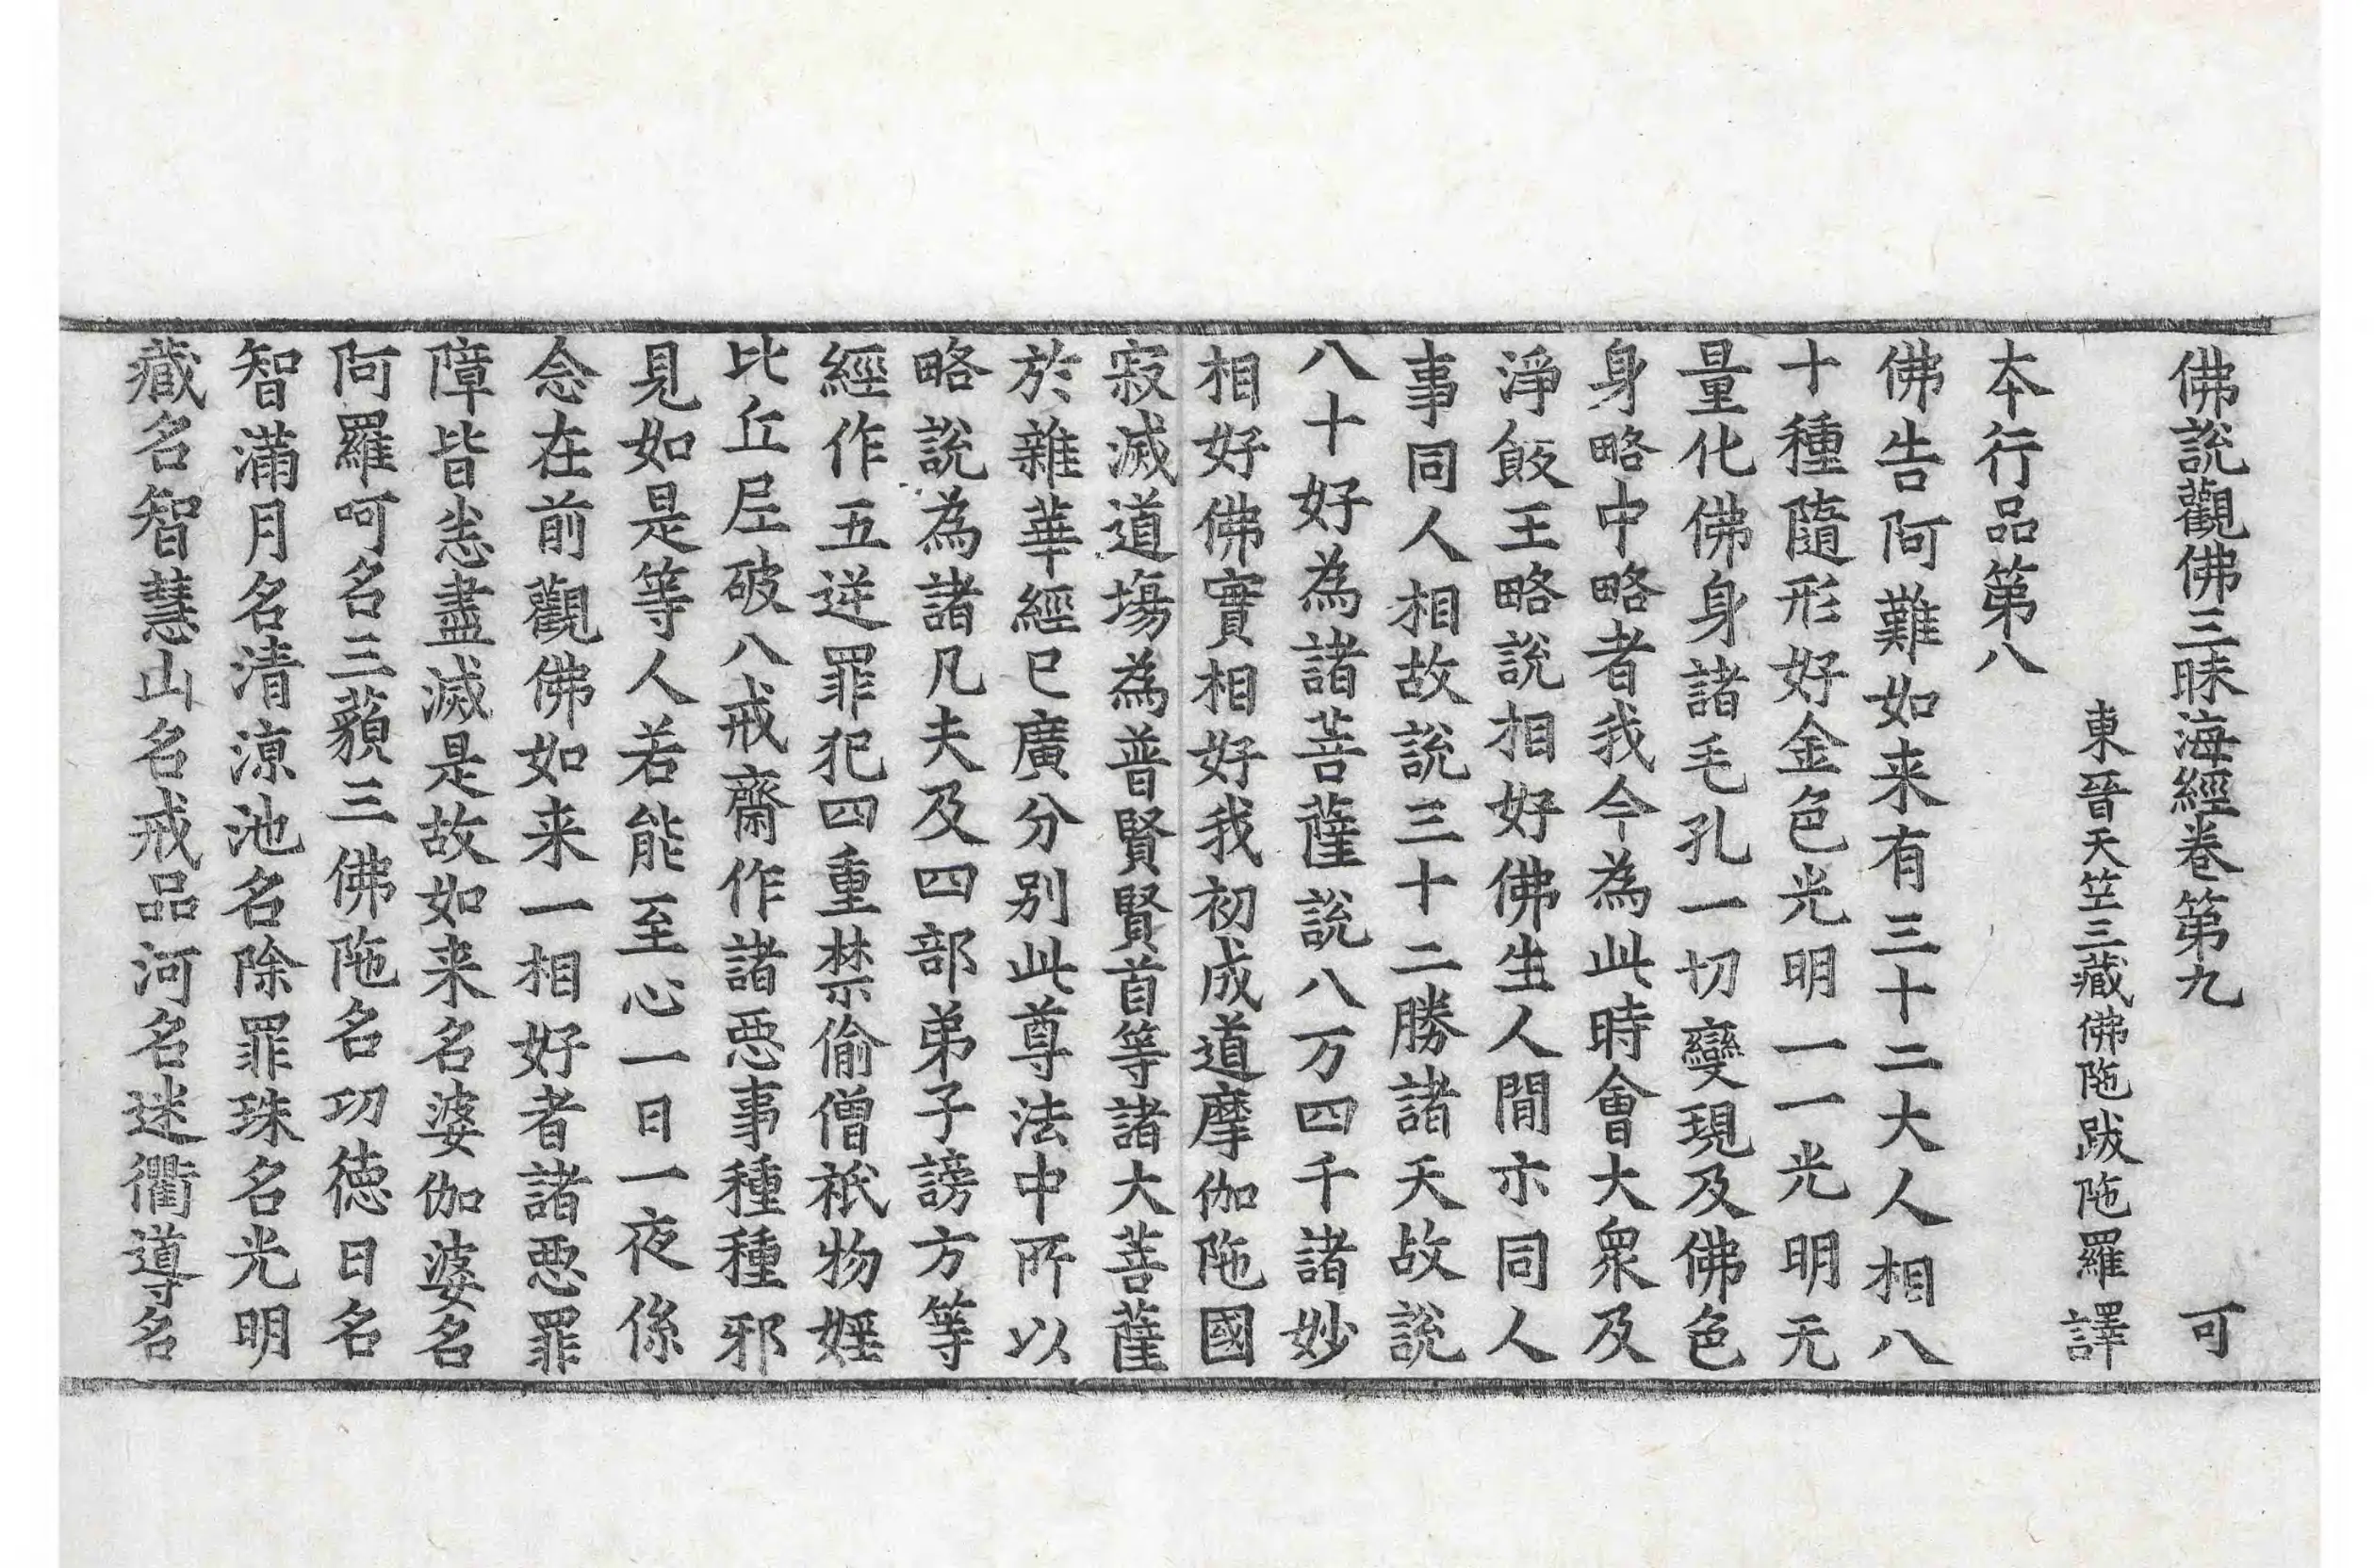 佛說觀佛三昧海經卷第九 可
東晉天竺三藏佛陁跋陁羅譯
本行品第八
佛告阿難如来有三十二大人相八
十種隨形好金色光明一一光明无
量化佛身諸毛孔一切變現及佛色
身略中略者我今為此時會大衆及
淨飯王略說相好佛生人間亦同人
事同人相故說三十二勝諸天故說
八十好為諸菩薩說八万四千諸妙
相好佛實相好我初成道摩伽陁國
寂滅道場為普賢賢首等諸大菩薩
於雜華經已廣分別此尊法中所以
略說為諸凡夫及四部弟子謗方等
經作五逆罪犯四重禁偷僧祇物婬
比丘尼破八戒齋作諸惡事種種邪
見如是等人若能至心一日一夜係
念在前觀佛如来一相好者諸惡罪
障皆悉盡滅是故如来名婆伽婆名
阿羅呵名三藐三佛陁名功德日名
智滿月名清涼池名除罪珠名光明
藏名智慧山名戒品河名迷衢導名